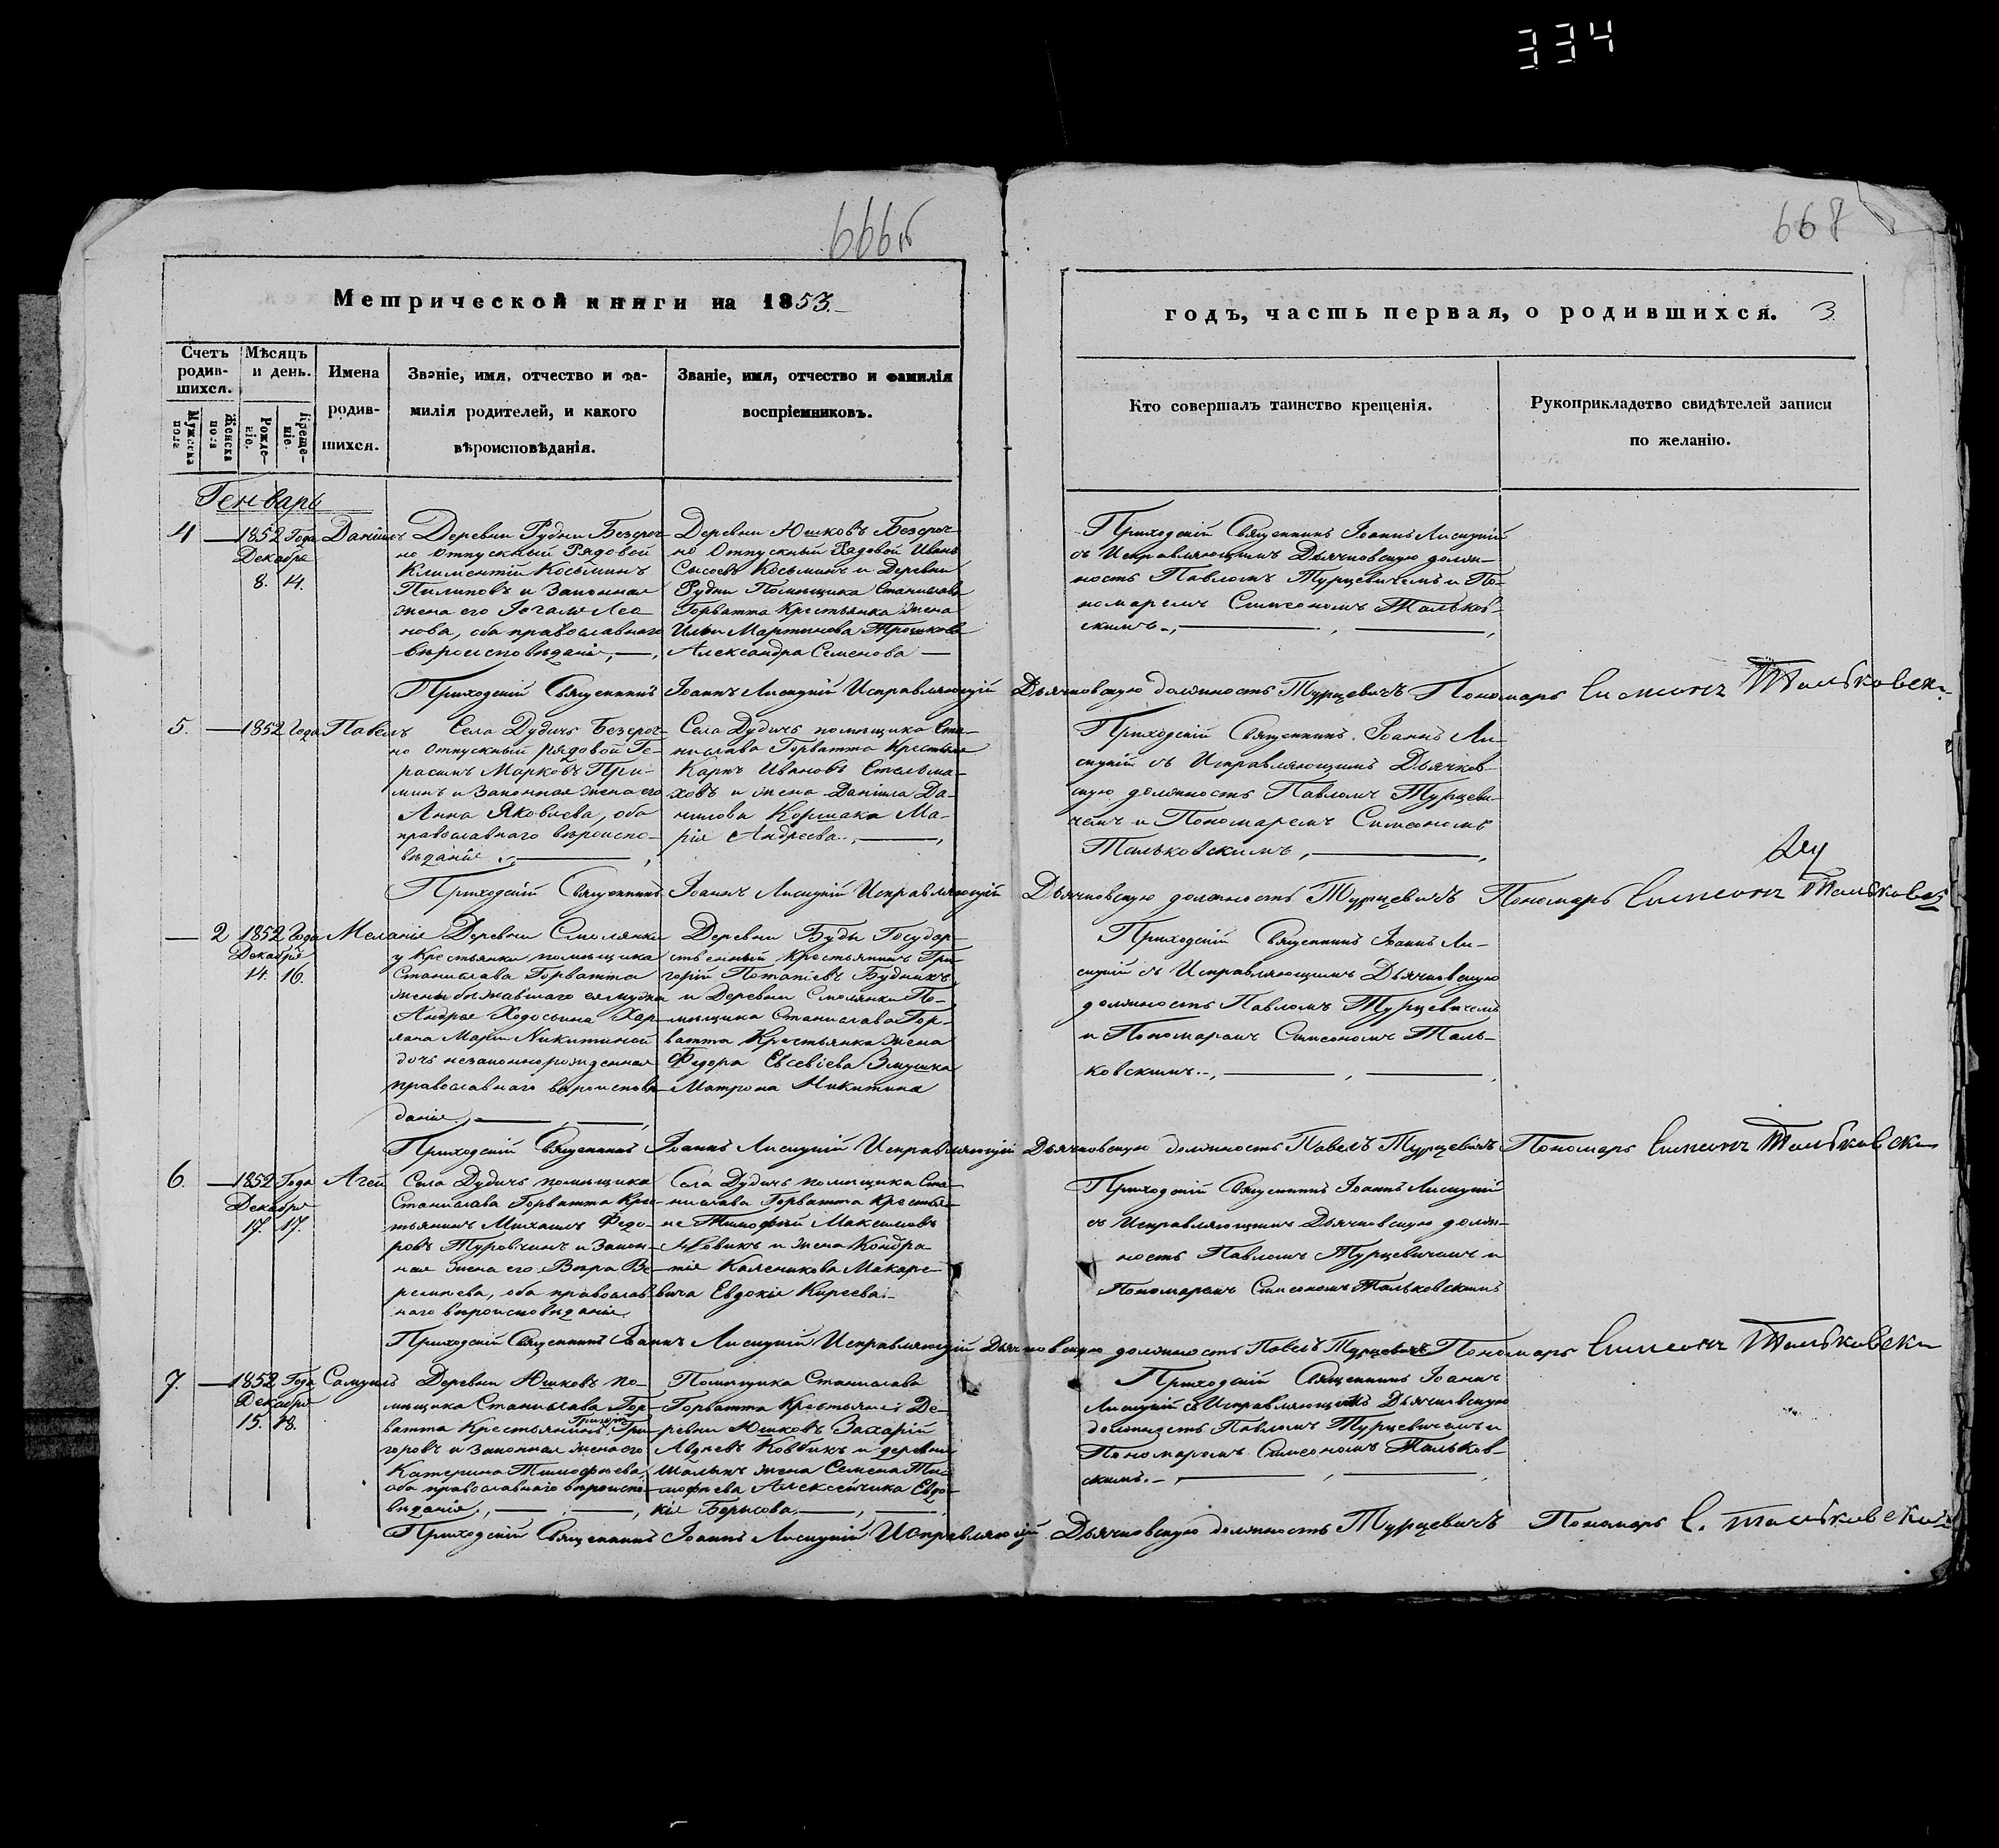 334
666б
667
Метрической книги на 1853.
годъ, часть первая, о родившихся. 3.
Счетъ родив-шихся.
Мужеска пола
Женска пола
Мѣсяцъ и день.
Рожде-ніе.
Креще-ніе.
Имена
родив-
шихся.
Званіе, имя, отчество и фа-
милія родителей, и какого
вѣроисповѣданія.
Званіе, имя, отчество и фамилія
воспріемниковъ.
Кто совершалъ таинство крещенія.
Рукоприкладство свидѣтелей записи
по желанію.
Генварь
4 — 1852 Года
Декабря
8. 14.
Даніилъ
Деревни Рудни Безсроч-
но отпускный Рядовой
Климентій Косьминъ
Пилиповъ и Законная
жена его
нова, оба православнаго
вѣроисповѣданія,
Деревни Юшковъ Безсроч-
но Отпускный Рядовой Иванъ
Сысоевъ Косьминъ и Деревни
Рудни Помѣщика Станислава
Горватта Крестьянка жена
Ильи Мартинова
Александра Семенова
Приходскій Священникъ Іоаннъ Лисицкій
съ Исправляющимъ Дьячковскую долж-
ность Павломъ Турцевичемъ и По-
номаремъ Симеономъ Тальков-
скимъ.
Приходскій Священникъ Іоаннъ Лисицкій Исправляющій Дьячковскую должность Турцевичъ Пономарь Симеонъ Тальковски
5. — 1852 Года
Павелъ
Села Дудичъ Безсроч-
но отпускный рядовой Ге-
расимъ Марковъ При-
минъ и Законная жена его
Анна Яковлева, оба
православнаго вѣроиспо-
вѣданія
Села Дудичъ помѣщика Ста-
нислава Горватта Крестьяне
Карпъ Ивановъ Стельма-
ховъ и жена Даніила Да-
нилова Коршака Ма-
рія Андреева.
Приходскій Священникъ Іоаннъ Ли-
сицкій съ Исправляющимъ Дьячков-
скую должность Павломъ Турцеви-
чемъ и Пономаремъ Симеономъ
Тальковскимъ,
Приходскій Священникъ Іоаннъ Лисицкій Исправляющій Дьячковскую должность Турцевичъ Пономарь Симеонъ Тальковск
— 2 1852 Года
Декабря
14. 16.
Меланія
Деревни Смолянки
у Крестьянки помѣщика
Станислава Горватта
жены бѣжавшаго ея мужа
Андрея Ходосьина Хар-
лана Маріи Никитиной
дочь незаконнорожденная
православнаго вѣроисповѣ-
данія.
Деревни Буды Государ-
ственный Крестьянинъ Гри-
горій Потапіевъ Будникъ
и Деревни Смолянки По-
мѣщика Станислава Гор-
ватта Крестьянка жена
Федора Евсевіева
Матрона Никитина
Приходскій Священникъ Іоаннъ Ли-
сицкій съ Исправляющимъ Дьячковскую
должность Павломъ Турцевичемъ
и Пономаремъ Симеономъ Таль-
ковскимъ.
Приходскій Священникъ Іоаннъ Лисицкій Исправляющій Дьячковскую должность Павелъ Турцевичъ Пономарь Симеонъ Тальковски
6. — 1852 Года
Декабря
17. 17.
Агей
Села Дудичъ помѣщика
Станислава Горватта Крес-
тьянинъ Михаилъ Федо-
ровъ Туровчинъ и Закон-
ная жена его Вѣра Ве-
ремѣева, оба православ-
наго вѣроисповѣданія
Села Дудичъ помѣщика Ста-
нислава Горватта Крестья-
не Тимофей Максимовъ
и жена Кондра-
тія Каленикова Макаре-
вича Евдокія Киреева.
Приходскій Священникъ Іоаннъ Лисицкій
съ Исправляющимъ Дьячковскую долж-
ность Павломъ Турцевичемъ и
Пономаремъ Симеономъ Тальковскимъ
Приходскій Священникъ Іоаннъ Лисицкій Исправляющій Дьячковскую должность Павелъ Турцевичъ Пономарь Симеонъ Тальковски
7. — 1852 Года
Декабря
15. 18.
Самуилъ
Деревни Юшковъ по-
мѣщика Станислава Гор-
ватта Крестьянинъ Григорій Гри-
горовъ и Законная жена его
Катерина Тимофеева,
оба православнаго вѣроиспо-
вѣданія,
Помѣщика Станислава
Горватта Крестьяне: Де-
ревни Юшковъ Захарій
Авдѣевъ Ковбикъ и деревни
жена Семена Ти-
мофеева Алексейчика Евдо-
кія Борисова,
Приходскій Священникъ Іоаннъ
Лисицкій съ Исправляющимъ Дьячковскую
должность Павломъ Турцевичемъ и
Пономаремъ Симеономъ Тальков-
скимъ.
Приходскій Священникъ Іоаннъ Лисицкій Исправляющій Дьячковскую должность Турцевичъ Пономарь С. Тальковский